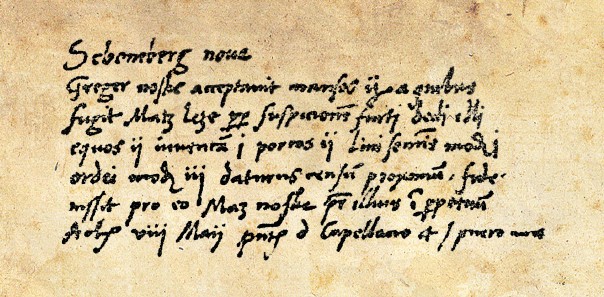 Scbonberg noua
Greger noske acceptauit mansos ij a quibus
fugit Matz leze ꝓꝑ suspicionē furti dedi illi
equos ij iuuencā i porcos ij lini semē mod i
ordei mod iii daturus censū proximū fide
iussit pro eo Maz noske illius ī ꝑpetuū
viii Maij d Capellano et puero meo